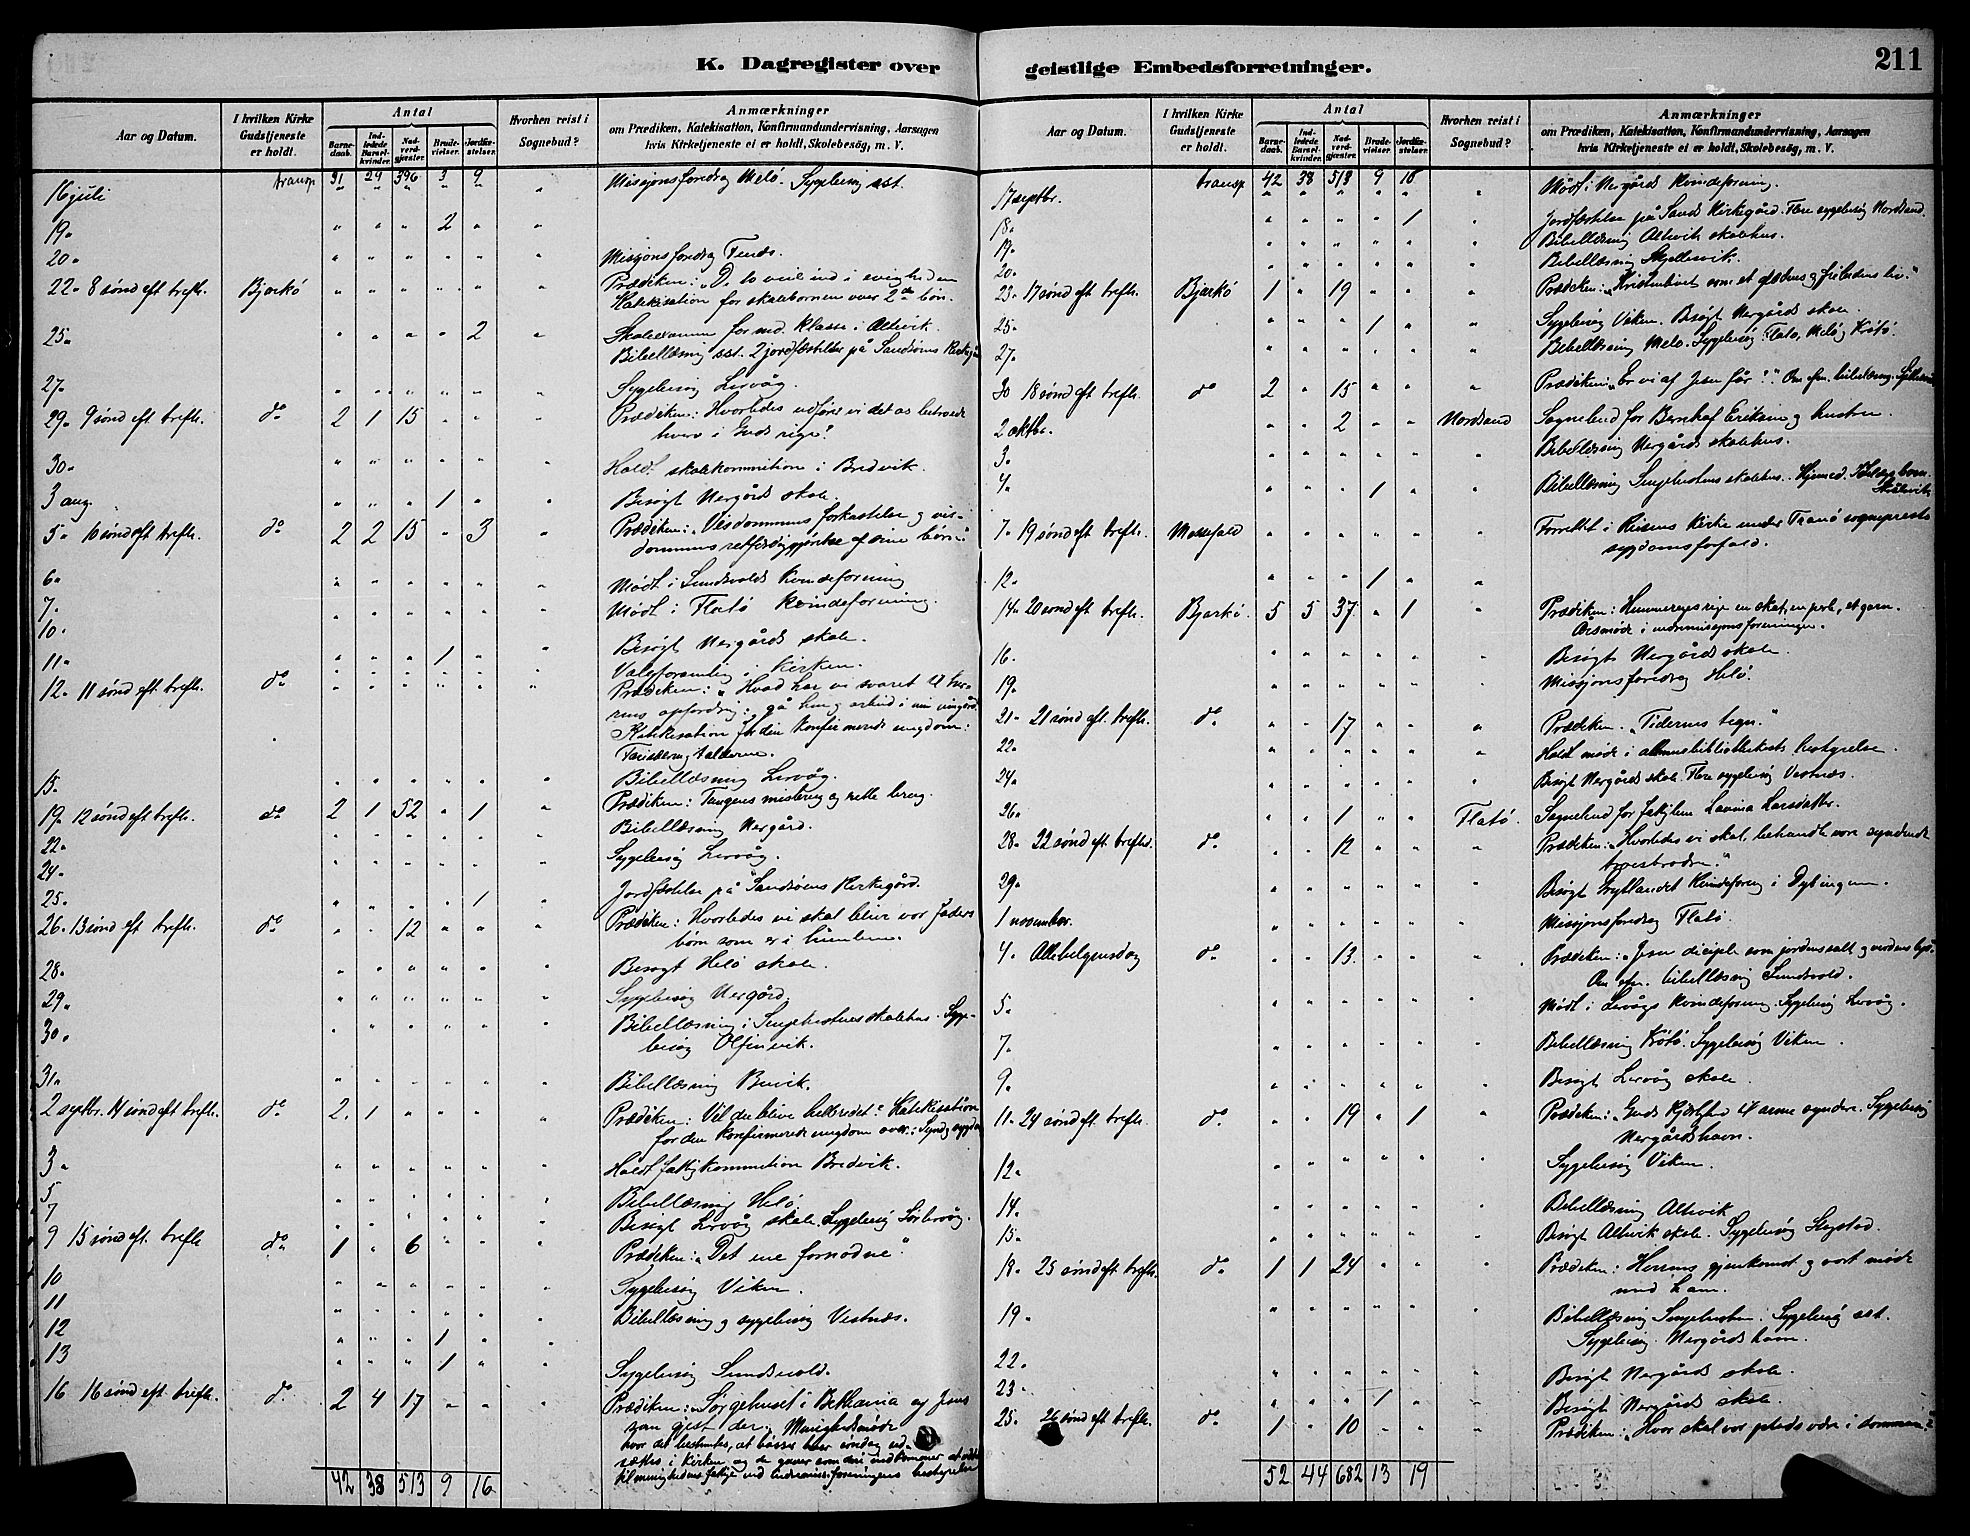 K. Dagregister over
geistlige Embedsforretninger.
211
Aar og Datum.
I hvilken Kirke Gudstjeneste er holdt.
Antal
Barnedaab.
Indledede Barselkvinder.
Nadverdgjæster.
Brudevielser.
Jordfæstelser.
Hvorhen reist i Sognebud?
Anmærkninger
om Prædiken, Katekisation, Konfirmandundervisning, Aarsagen
hvis Kirketjeneste ei er holdt, Skolebesøg, m. V.
transp 31 29 396 3 9
16 juli " " " " " " Missjonsforedrag Melö. Sygebesøg sst.
19. " " " 2 " "
20. " " " " " " Missjonsforedrag Fenes.
22. 8 sønd eft trefh. Bjarkö " " " " " " Prædiken: ind i evigheden
Katekisation for skolebørnene over 2den bön.
25. " " " " 2 " Skoleexamen for ned. klasse i Altevik.
Bibellæsning sst. 2 jordfæstelser på Sandsöens
27. " " " " " " Sygebesøg Lervåg.
29. 9 sønd eft trefh. do 2 1 15 " " " Prædiken: Hvorledes udfører vi det os betroede
hverv i Guds rige?
30. " " " " " " Holdt skolekommition i Bredvik.
3 aug. " " " 1 " " Besøgt Nergårds skole.
5. 10 sønd eft trefh. do 2 2 15 " 3 " Prædiken: Visdommens forkastelse og vis-
dommens retfærdiggjörelse af sine börn.
6. " " " " " " Mödt i Sundsvolds kvindeforening
7. " " " " " " Mödt i Flatö kvindeforening.
10. " " " " " " Besøgt Nergårds skole.
11. " " " 1 " " Valgforsamling i kirken.
12. 11 sønd eft trefh. do " " " " " " Prædiken: "Hvad har vi svaret til her-
rens opfordring: gå hen og arbeid i min vingård
Katekisation for den konfirmerede ungdom:
Farisæeren og tolderen.
15. " " " " " " Bibellæsning Lervåg.
19. 12 sønd eft trefh. do 2 1 52 " 1 " Prædiken: Tungens misbrug og rette brug.
22. " " " " " " Bibellæsning Nergård.
24. " " " " " " Sygebesøg Lervåg.
25. " " " " 1 " Jordfæstelse på Sandsöens kirkegård.
26. 13 sønd eft trefh. do " " 12 " " " Prædiken: Hvorledes vi skal blive vor Faders
börn som er i himlene.
28. " " " " " " Besøgt Helö skole.
29. " " " " " " Sygebesøg Nergård.
30. " " " " " " Bibellæsning i Senjehestens skolehus. Syge-
besøg Olfinvik.
31. " " " " " " Bibellæsning Buvik.
2 septbr. 14 sønd eft trefh. do 2 1 " " " " Prædiken: Vil du blive helbredet? Katekisation
for den konfirmerede ungdom over:
3. " " " " " " Holdt fattigkommition Bredvik.
5 " " " " " " Bibellæsning Helö.
7 " " " " " " Besøgt Lervåg skole. Sygebesøg
9 15 sønd eft. trefh. do 1 " 6 " " " Prædiken: "Det ene fornödne".
10 " " " " " " Sygebesøg Viken.
11 " " " " " " Bibellæsning og sygebesøg Vestnes.
12 " " " 1 " "
13 " " " 1 " " Sygebesøg Sundsvold.
16 16 sønd eft. trefh. do 2 4 17 " " " Prædiken: "Sørgehuset i Bethania og Jesus
som gjest der. Menighedsmöde
hvor det bestemtes, at bösser hver söndag ud-
sættes i kirken og de gaver som deri indkommer
til menighedens fattige ved indremis.foreningens bestyrelse
42 38 513 9 16
Aar og Datum.
I hvilken Kirke Gudstjeneste er holdt.
Antal
Barnedaab.
Indledede Barselkvinder.
Nadverdgjæster.
Brudevielser.
Jordfæstelser.
Hvorhen reist i Sognebud?
Anmærkninger
om Prædiken, Katekisation, Konfirmandundervisning, Aarsagen
hvis Kirketjeneste ei er holdt, Skolebesøg, m. V.
transp 42 38 513 9 16
17 septbr. " " " " " " Mödt i Nergårds kvindeforening.
18. " " " " 1 " Jordfæstelse på Sands kirkegård. Flere sygebesøg Nordsand.
19. " " " " " " Bibellæsning Altevik skolehus.
20. " " " " " " Bibellæsning Skjellesvik.
23. 17 sønd eft trefh. Bjarkö 1 " 19 " " " Prædiken: "Kristenlivet som et glædens og frihedens liv."
25. " " " 1 " " Sygebesøg Viken. Besøgt Nergårds skole.
27. " " " " " " Bibellæsning Melö. Sygebesøg Flatö, Melö og Krötö.
30 18 sønd eft trefh. do 2 " 15 " " " Prædiken: "Er vi af Jesu får?". Om efm. bibellæsning
2 oktbr. " " 2 " " Nordsand Sognebud for Bernhof Eriksen og hustru.
3. " " " " " " Bibellæsning Nergårds skolehus.
4. " " " 1 " " Bibellæsning Senjehestens skolehus.
7. 19 sønd eft trefh. Messefald " " " " " " Forrettet i Kirke under Tranö sogneprests
sygdomsforfald.
12. " " " 1 " "
14. 20 sønd eft trefh. Bjarkö. 5 5 37 " 1 " Prædiken: Himmeriges rige en skat, en perle, et garn.
Årsmöde i indremissjonsforeningen.
16. " " " " " " Besøgt Nergårds skole.
19. " " " " " " Missjonsforedrag Helö.
21. 21 sønd eft. trefh. do " " 17 " " " Prædiken. "Tidernes tegn."
22. " " " " " " Holdt möde i almuebibliothekets bestyrelse.
24. " " " " " " Besøgt Nergårds skole. Flere sygebesøg Vestnes.
26. " " 1 " " Flatö. Sognebud for fattiglem Lavina Larsdatter.
28. 22 sønd eft trefh. do " " 12 " " " Prædiken: "Hvorledes vi skal behandle vore syndende
troesbrödre."
29. " " " " " " Besøgt kvindeforening i Dybingen.
1 november. " " " " " " Missjonsforedrag Flatö.
4. Allehelgensdag do " " 13 " " " Prædiken: "Jesu disciple som jordens salt og verdens lys."
Om efm. bibellæsning Sundsvold.
5. " " " " " " Mödt i Lervågs kvindeforening. Sygebesøg Lervåg.
7. " " " " " " Bibellæsning Krötö. Sygebesøg Viken.
9. " " " " " " Besøgt Lervåg skole.
11. 24 sønd eft trefh. do " " 19 " 1 " Prædiken: "Guds kjærlighed til arme syndere. Sygebesøg
Nergårdshavn.
12. " " " " " " Sygebesøg Viken.
14. " " " " " " Bibellæsning Altevik
15. " " " " " " Besøgt Altevik skole. Sygebesøg
18. 25 sønd eft trefh. do 1 1 24 " " " Prædiken: Herrens gjenkomst og vort möde
med ham.
19. " " " " " " Bibellæsning Senjehesten. Sygebesøg sst.
Sygebesøg. Nergårdshavn.
22. " " " " " " Besøgt Nergårds skole.
23. " " " 1 " " Besøgt Nergårds skole.
25. 26 sønd eft trefh. do 1 " 10 " " " Prædiken: "Hvor skal vor plads være i dommen?"
52 44 682 13 19